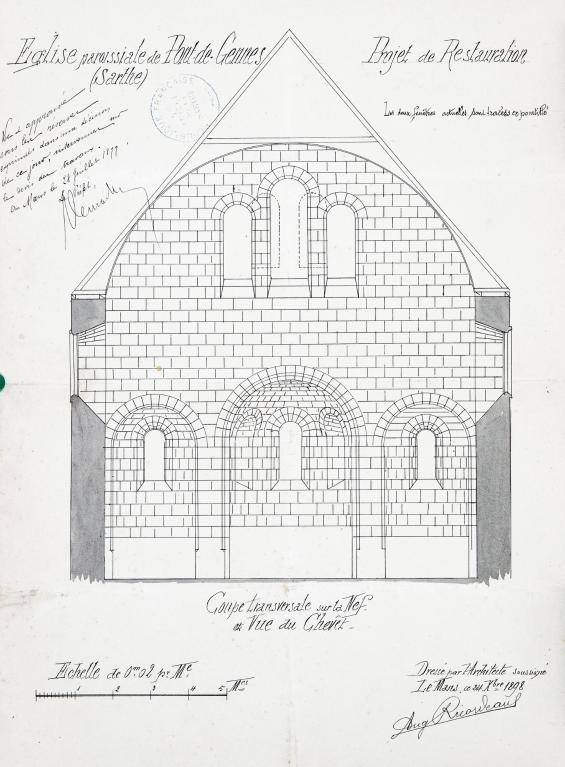 Eglise paroissiale de Pont-de-Gennes
(Sarthe)
Projet de Restauration
Les deux fenêtres actuelles sont tracées en pointillé
Vu & approuvé
sous les réserves
exprimées dans ma décision
de ce jour, intervenue sur
le devis des travaux.
Au Mans le 28 Juillet 1899
Le Préfet,
Coupe transversale sur la Nef
et Vue du Chevet
Echelle de 0m02 pr Me
1 2 3 4 5 Mes
Dressé par l'Architecte soussigné
Le Mans, ce 24 Xbre 1898
Aug Ricordeau